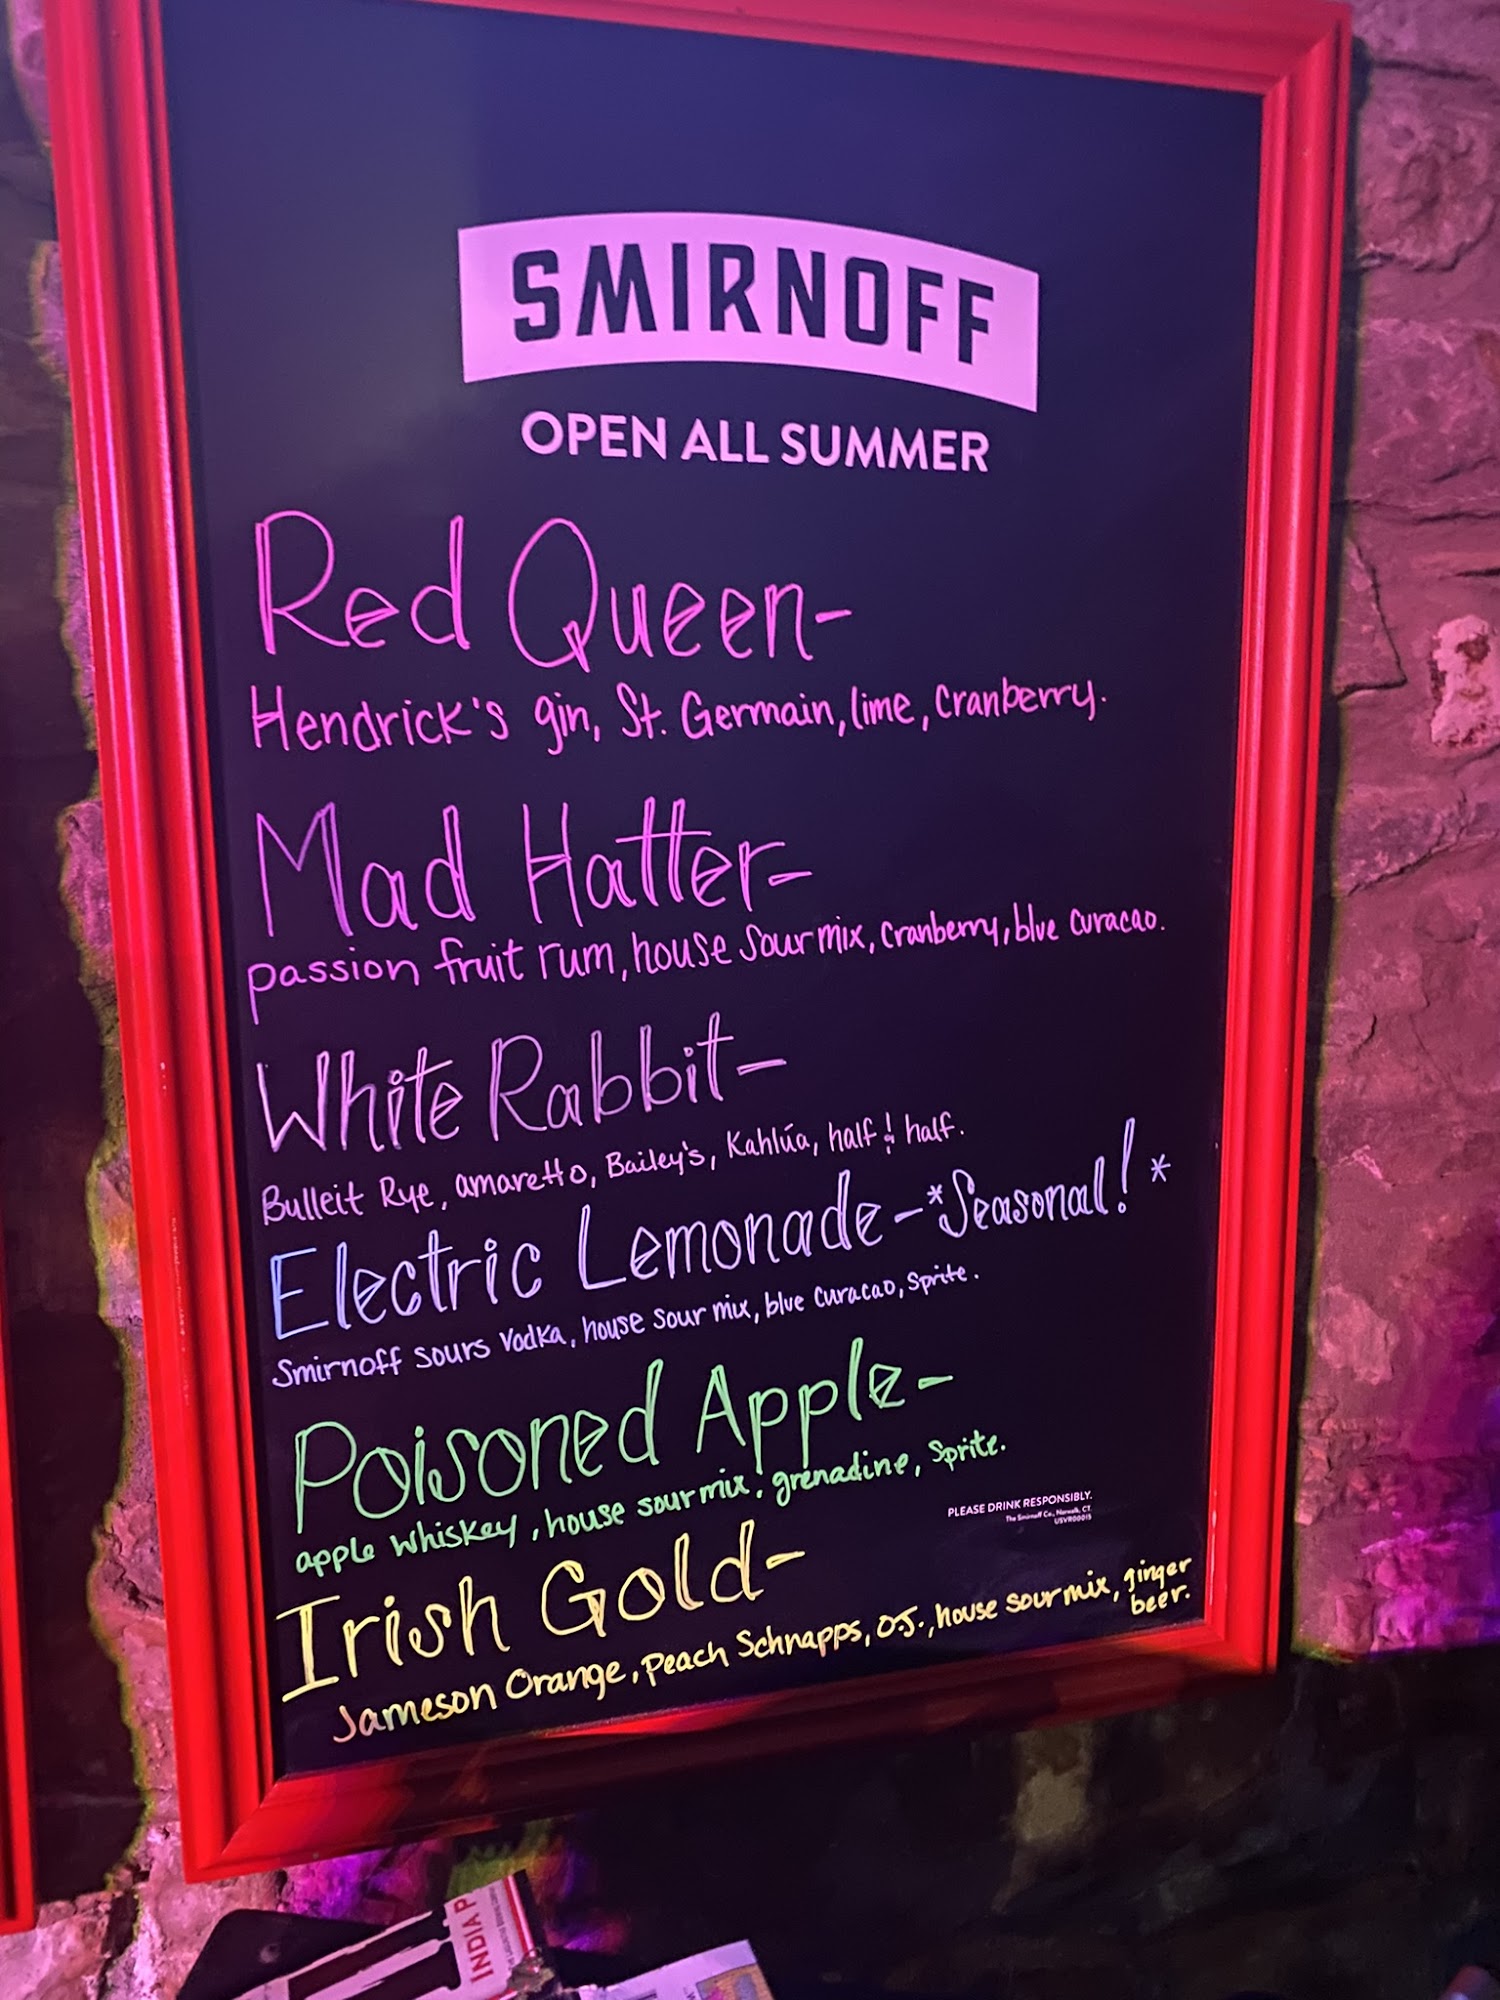 SMIRNOFF
OPEN ALL SUMMER
Red Queen-
Hendrick's gin, St. Germain, lime, cranberry.
Mad Hatter-
passion fruit rum, house sour mix, cranberry, blue curacao.
White Rabbit-
Bulleit Rye, amaretto, Bailey's, Kahlúa, half & half.
Electric Lemonade-*Seasonal!*
Smirnoff sours vodka, house sour mix, blue curacao, Sprite.
Poisoned Apple-
apple whiskey, house sour mix, grenadine, Sprite.
PLEASE DRINK RESPONSIBLY.
The Smirnoff Co., Norwalk, CT.
USVR00015
Irish Gold-
Jameson Orange, peach Schnapps, O.J., house sour mix, ginger
beer.
INDIA P